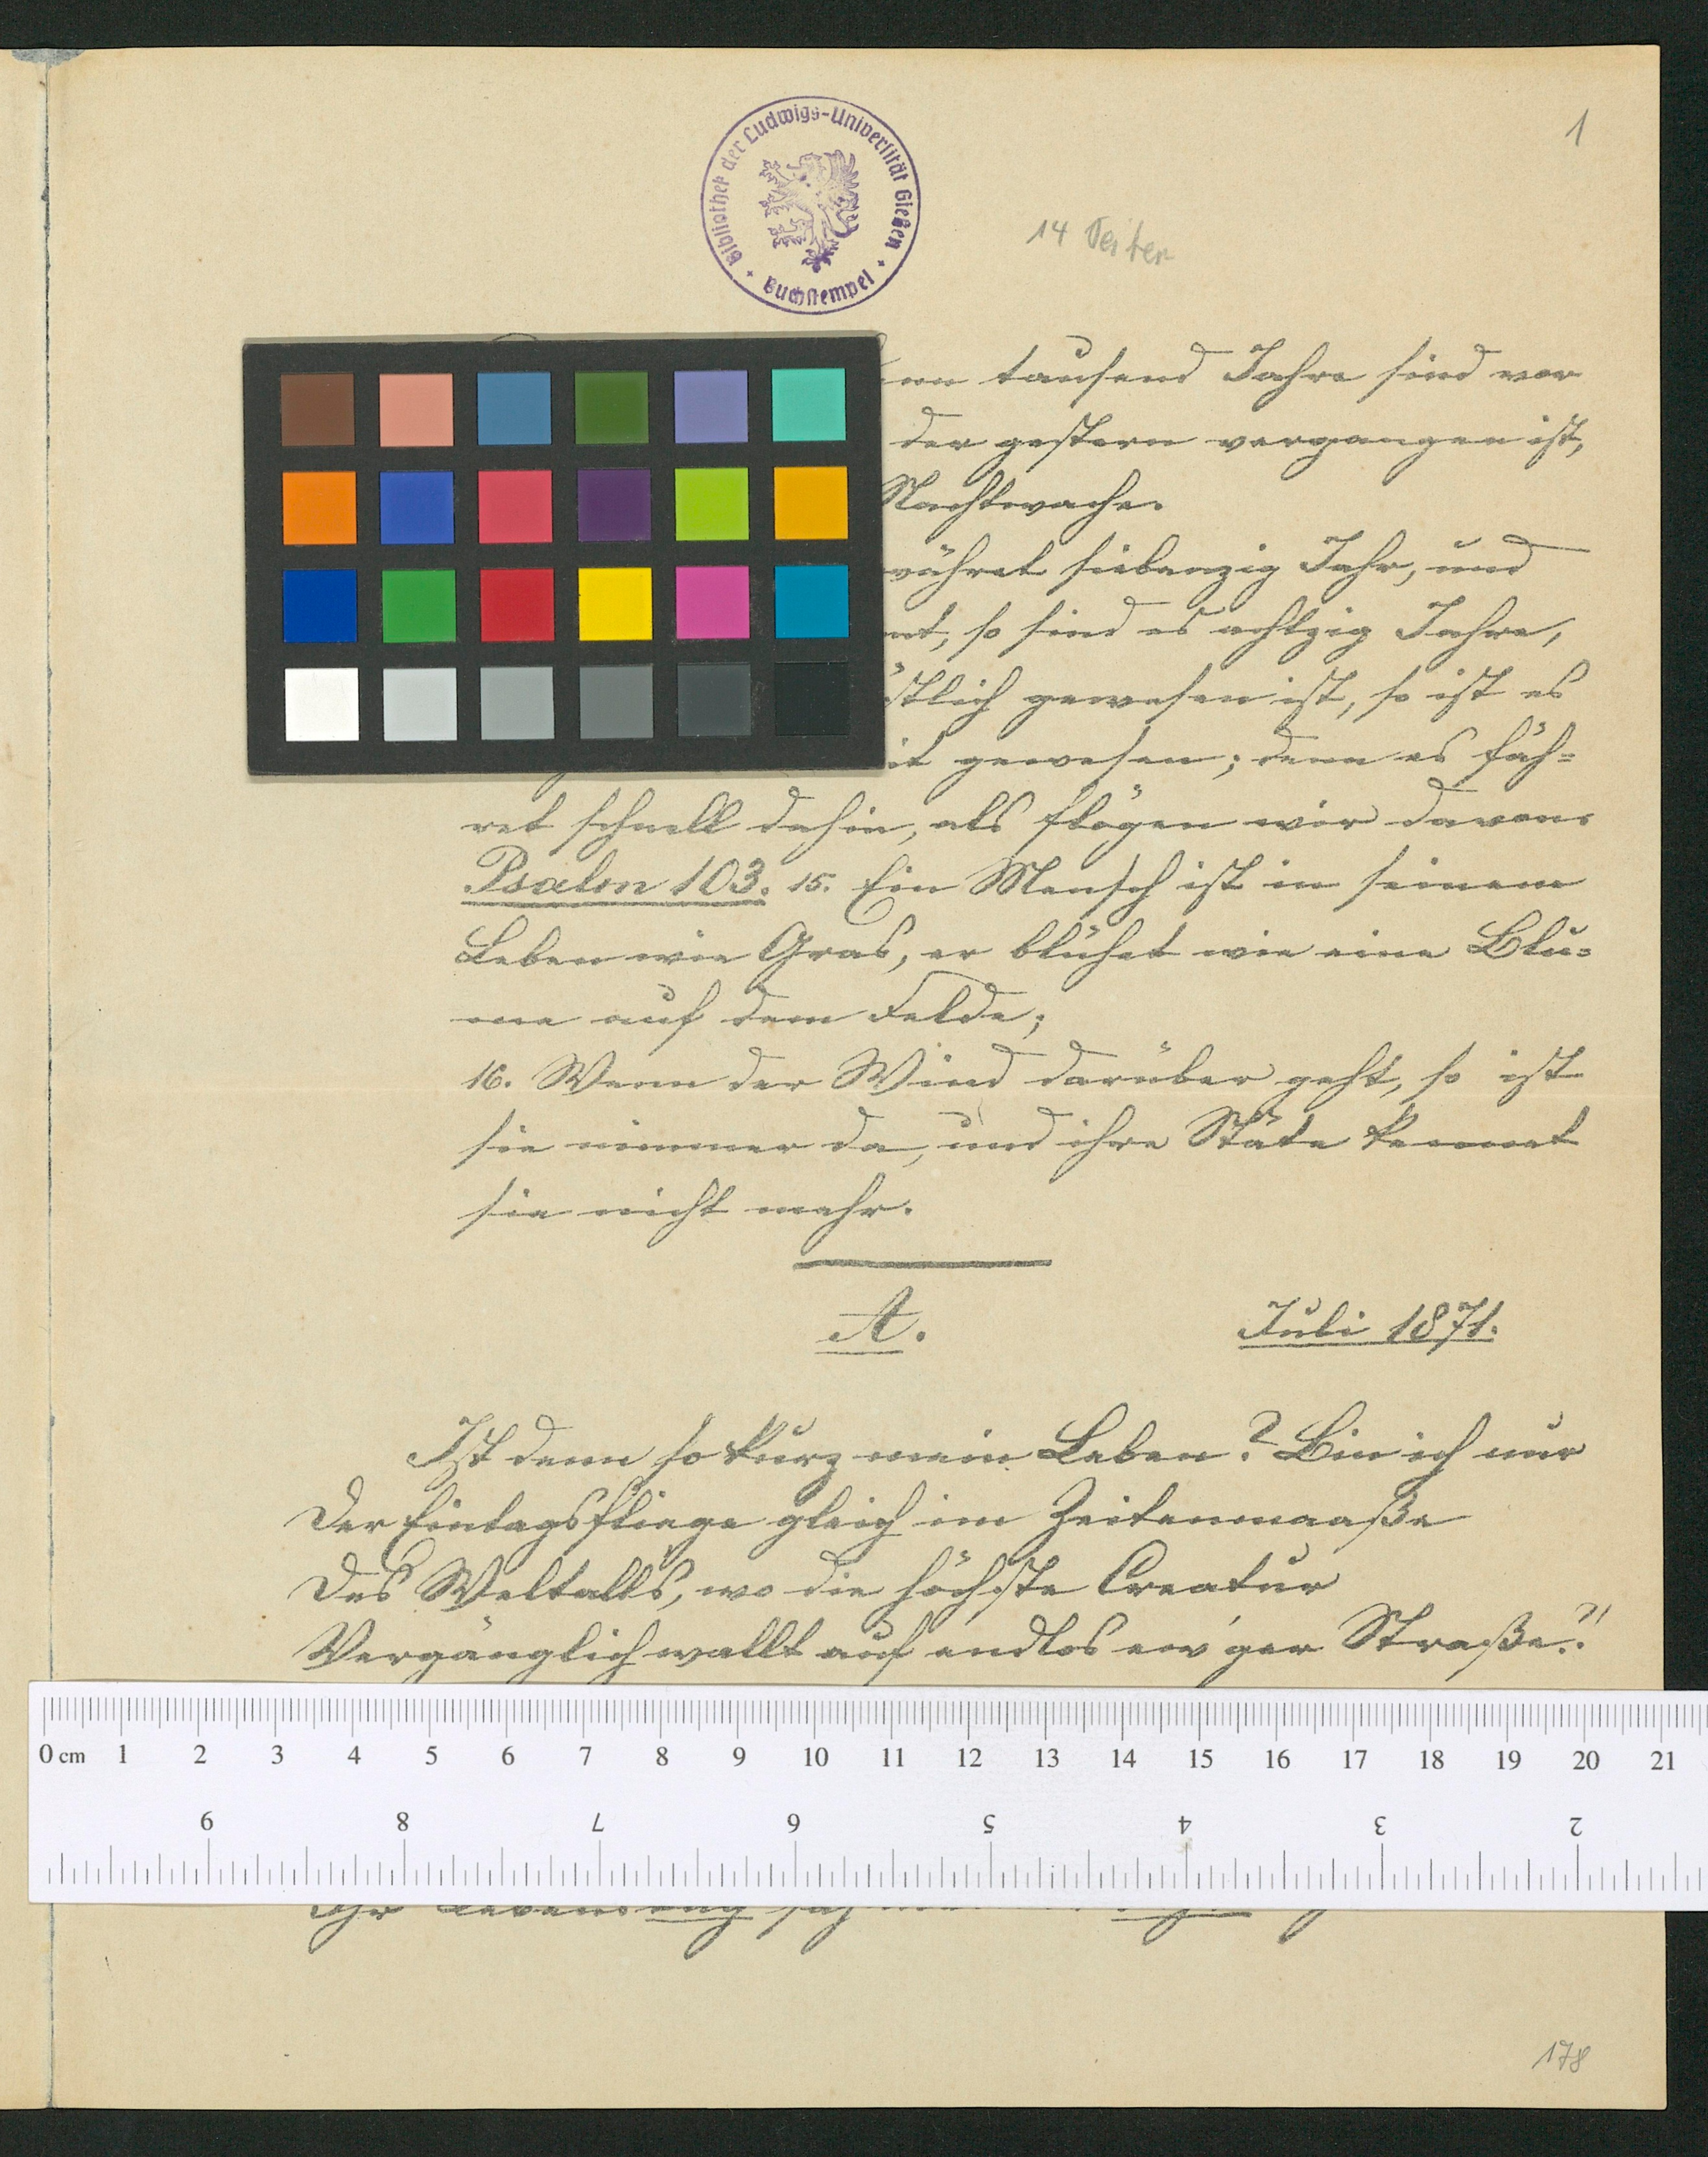 1
Bibliothek der Ludwigs-Universität Gießen
Buchstempel
14
tausend Jahre sind vor
der gestern vergangen ist,
Nachtwache.
währet siebenzig Jahr, und
so sind es achtzig Jahre,
gewesen ist, so ist es
gewesen; denn es fäh=
ret schnell dahin, als flögen wir davon.
Psalm 103. 15. Ein Mensch ist in seinem
Leben wie Gras, er blühet wie eine Blu=
me auf dem Felde;
16. Wenn der Wind darüber geht, so ist
sie nimmer da, und ihre Stäte kennet
sie nicht mehr.
A.
Juli 1871.
Ist denn so kurz mein Leben? Bin ich nur
Der Eintagsfliege gleich im Zeitenmaaße
Des Weltalls, wo die höchste Creatur
Vergänglich wallt auf endlos ew'ger Straße?!
0 cm 1 2 3 4 5 6 7 8 9 10 11 12 13 14 15 16 17 18 19 20 21
9 8 7 6 5 4 3 2
178